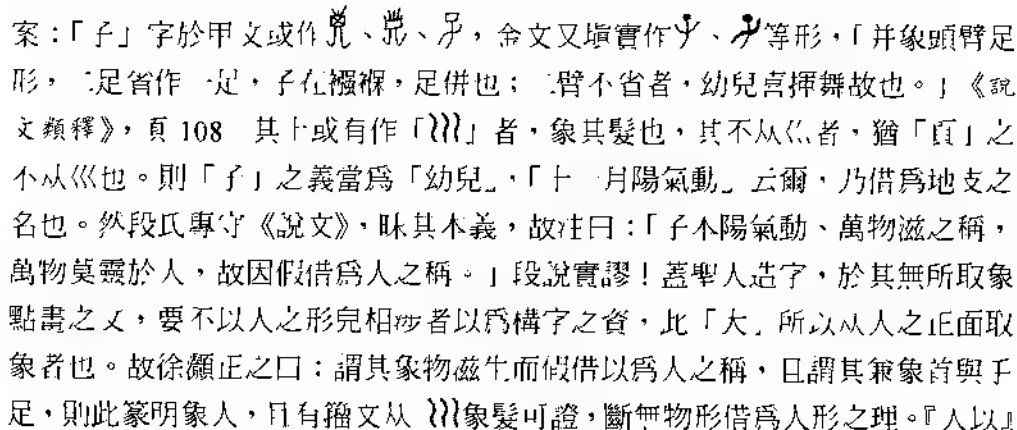 案：「子」字於甲文或作、、，金文又塡實作、等形，「并象頭臂足
形，二足省作一足，子在襁褓，足併也；二臂不省者，幼兒喜揮舞故也。」《說
文類釋》，頁 108　其上或有作「巛」者，象其髮也，其不从巛者，猶「𦣻」之
不从巛也。則「子」之義當爲「幼兒」，「十一月陽氣動」云爾，乃借爲地支之
名也。然段氏專守《說文》，昧其本義，故注曰：「子本陽氣動、萬物滋之稱，
萬物莫靈於人，故因假借爲人之稱。」段說實謬！蓋聖人造字，於其無所取象
點畫之文，要不以人之形皃相涉者以爲構字之資，此「大」所以从人之正面取
象者也。故徐灝正之曰：謂其象物滋生而假借以爲人之稱，且謂其兼象首與手
足，則此篆明象人，且有籀文从巛象髮可證，斷無物形借爲人形之理。『人以』